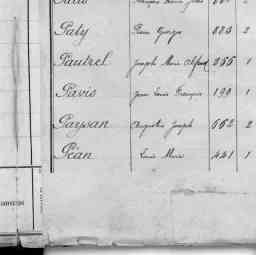 Paty Pierre Georges 883 2
Pautrel Joseph Marie Alfred 255 1
Pavis Jean Louis François 190 1
Paysan Augustin Joseph 662 2
Péan Louis Marie 441 1